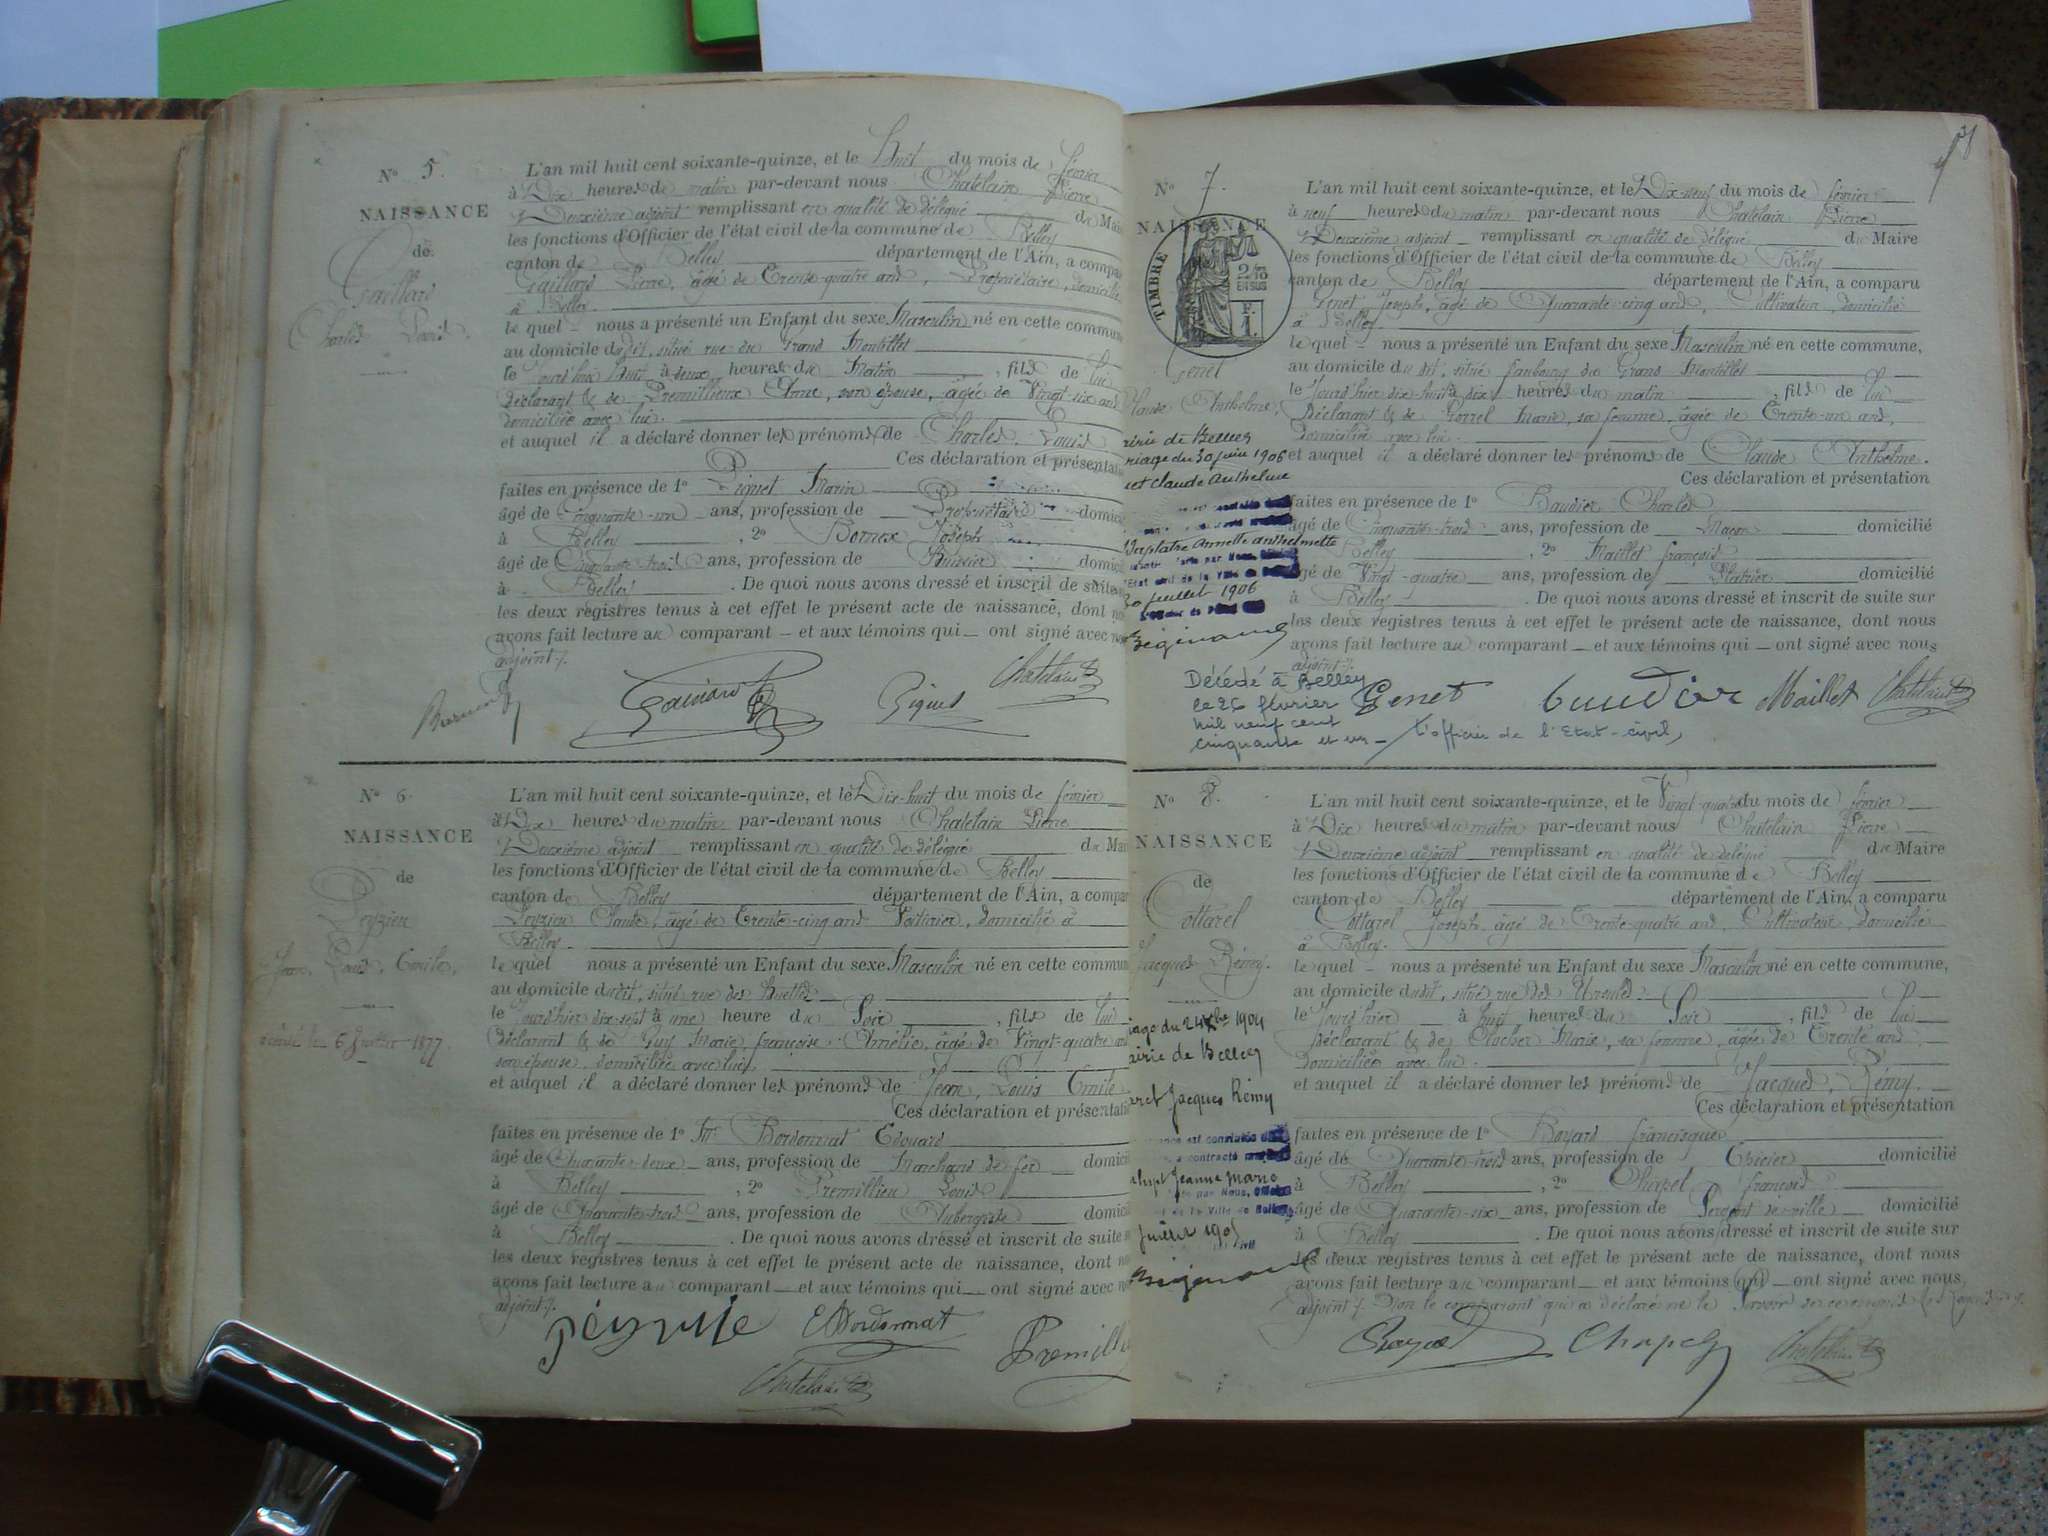 N° 5.
NAISSANCE
de
Gaillard
Charles Louis.
L'an mil huit cent soixante-quinze, et le Huit du mois de février
à Dix heures du matin par-devant nous Chatelain Pierre
Deuxième adjoint remplissant en qualité de délégué du Mair
les fonctions d'Officier de l'état civil de la commune de Belley
canton de Belley département de l'Ain, a compa
Gaillard Pierre, âgé de Trente-quatre ans, Propriétaire, domicilié
à Belley.
le quel nous a présenté un Enfant du sexe Masculin né en cette commune
au domicile dudit, situé rue du Grand Montillet
le jourd'hui Huit à deux heures du Matin, fils de lui
déclarant & de Premillieux Anne, son épouse, âgée de Vingt-six ans
domiciliée avec lui.
et auquel il a déclaré donner les prénoms de Charles, Louis
Ces déclaration et présentati
faites en présence de 1° Piquet Marin
âgé de Cinquante-un ans, profession de Propriétaire domici
à Belley, 2° Bornex Joseph
âgé de Cinquante-trois ans, profession de Huissier domici
à Belley. De quoi nous avons dressé et inscrit de suite
les deux registres tenus à cet effet le présent acte de naissance, dont n
avons fait lecture au comparant et aux témoins qui ont signé avec nous
adjoint
Chatelain
N° 6.
NAISSANCE
de
Peyzieu
Jean, Louis, Emile.
L'an mil huit cent soixante-quinze, et le Dix-huit du mois de février
à Dix heures du matin par-devant nous Chatelain Pierre
Deuxième adjoint remplissant en qualité de délégué du Mai
les fonctions d'Officier de l'état civil de la commune de Belley
canton de Belley département de l'Ain, a compar
Peyzieu Claude, âgé de Trente-cinq ans Voiturier, domicilié à
Belley.
le quel nous a présenté un Enfant du sexe Masculin né en cette commun
au domicile dudit, situé rue des
le jourd'hier dix-sept à une heure du Soir, fils de lui
déclarant & de Guy Marie, françoise Amélie, âgée de Vingt-quatre ans
son épouse, domiciliée avec lui,
et auquel il a déclaré donner les prénoms de Jean, Louis Emile
6 1877
Ces déclaration et présentatio
faites en présence de 1° Mr Bordonnat Edouard
âgé de Quarante-deux ans, profession de Marchand de fer domicil
à Belley, 2° Premillieu Louis
âgé de Quarante-trois ans, profession de Aubergiste domici
à Belley. De quoi nous avons dressé et inscrit de suite
les deux registres tenus à cet effet le présent acte de naissance, dont n
avons fait lecture au comparant et aux témoins qui ont signé avec n
adjoint
EBordonnat
Chatelain
31
N° 7.
NAISSANCE
TIMBRE
2/10
EN SUS
F.
1.
Genet
Claude Anthelme
L'an mil huit cent soixante-quinze, et le Dix-neuf du mois de février
à neuf heures du matin par-devant nous Chatelain Pierre
Deuxième adjoint remplissant en qualité de délégué du Maire
les fonctions d'Officier de l'état civil de la commune de Belley
canton de Belley département de l'Ain, a comparu
Genet Joseph, âgé de Quarante-cinq ans, Cultivateur, domicilié
à Belley.
le quel nous a présenté un Enfant du sexe Masculin né en cette commune,
au domicile dudit, situé faubourg du Grand Montillet
le jourd'hier dix-huit à dix heures du matin, fils de lui
déclarant & de Marie, sa femme, âgée de Trente-un ans,
domiciliée avec lui.
et auquel il a déclaré donner les prénoms de Claude Anthelme.
Ces déclaration et présentation
faites en présence de 1° Baudier Charles
âgé de Cinquante-trois ans, profession de Maçon domicilié
Belley, 2° Maillet françois
âgé de Vingt-quatre ans, profession de Platrier domicilié
à Belley. De quoi nous avons dressé et inscrit de suite sur
les deux registres tenus à cet effet le présent acte de naissance, dont nous
avons fait lecture au comparant et aux témoins qui ont signé avec nous
adjoint
airie de Belley
riage du 30 juin 1906
et Claude Anthelme
Annette anthelmette
30 juillet 1906
Décédé à Belley
le 26 février
mil neuf cent
cinquante et un - L'officier de l'Etat-civil,
Genet Baudier Maillet Chatelain
N° 8.
NAISSANCE
de
Cottarel
Jacques Rémy.
L'an mil huit cent soixante-quinze, et le Vingt-quatre du mois de février
à Dix heures du matin par-devant nous Chatelain Pierre
Deuxième adjoint remplissant en qualité de délégué du Maire
les fonctions d'Officier de l'état civil de la commune de Belley
canton de Belley département de l'Ain, a comparu
Cottarel Joseph, âgé de Trente-quatre ans, Cultivateur, domicilié
à Belley.
le quel nous a présenté un Enfant du sexe Masculin né en cette commune,
au domicile dudit, situé rue des Ursules.
le jourd'hier à huit heures du Soir, fils de lui
déclarant & de Marie, sa femme, âgée de Trente ans,
domiciliée avec lui.
et auquel il a déclaré donner les prénoms de Jacques, Rémy.
Ces déclaration et présentation
faites en présence de 1° Boyard francisque
âgé de Quarante-trois ans, profession de Epicier domicilié
à Belley, 2° Chapel françois
âgé de Quarante-six ans, profession de Sergent de ville domicilié
à Belley. De quoi nous avons dressé et inscrit de suite sur
les deux registres tenus à cet effet le présent acte de naissance, dont nous
avons fait lecture au comparant et aux témoins qui ont signé avec nous,
adjoint
iage du 24 Xbre 1904
airie de Belley
Jacques Rémy
Jeanne Marie
Chapel
Chatelain